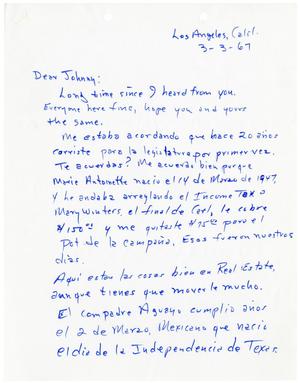 Los Angeles, Calif.
3-3-67
Dear Johnny:
Long time since I heard from you.
Everyone here fine, hope you and yours
the same.
Me estaba acordando que hace 20 años
corriste para la legislatura por primer vez.
Te acuerdas? Me acuerdo bien porque
Marie Antoinette nacio el 14 de Marzo de 1947,
y le andaba arreglando el Income Tax a
Mary Winters, el final de Carl, le cobre
$150.00 y me quitaste $75.00 para el
Pot de la campaña. Esos fueron nuestros
dias.
Aqui estan las cosas bien en Real Estate,
aunque tienes que moverle mucho.
El compadre Aguayo cumplio años
el 2 de Marzo, Mexicano que nacio
el dia de la Independencia de Texas.